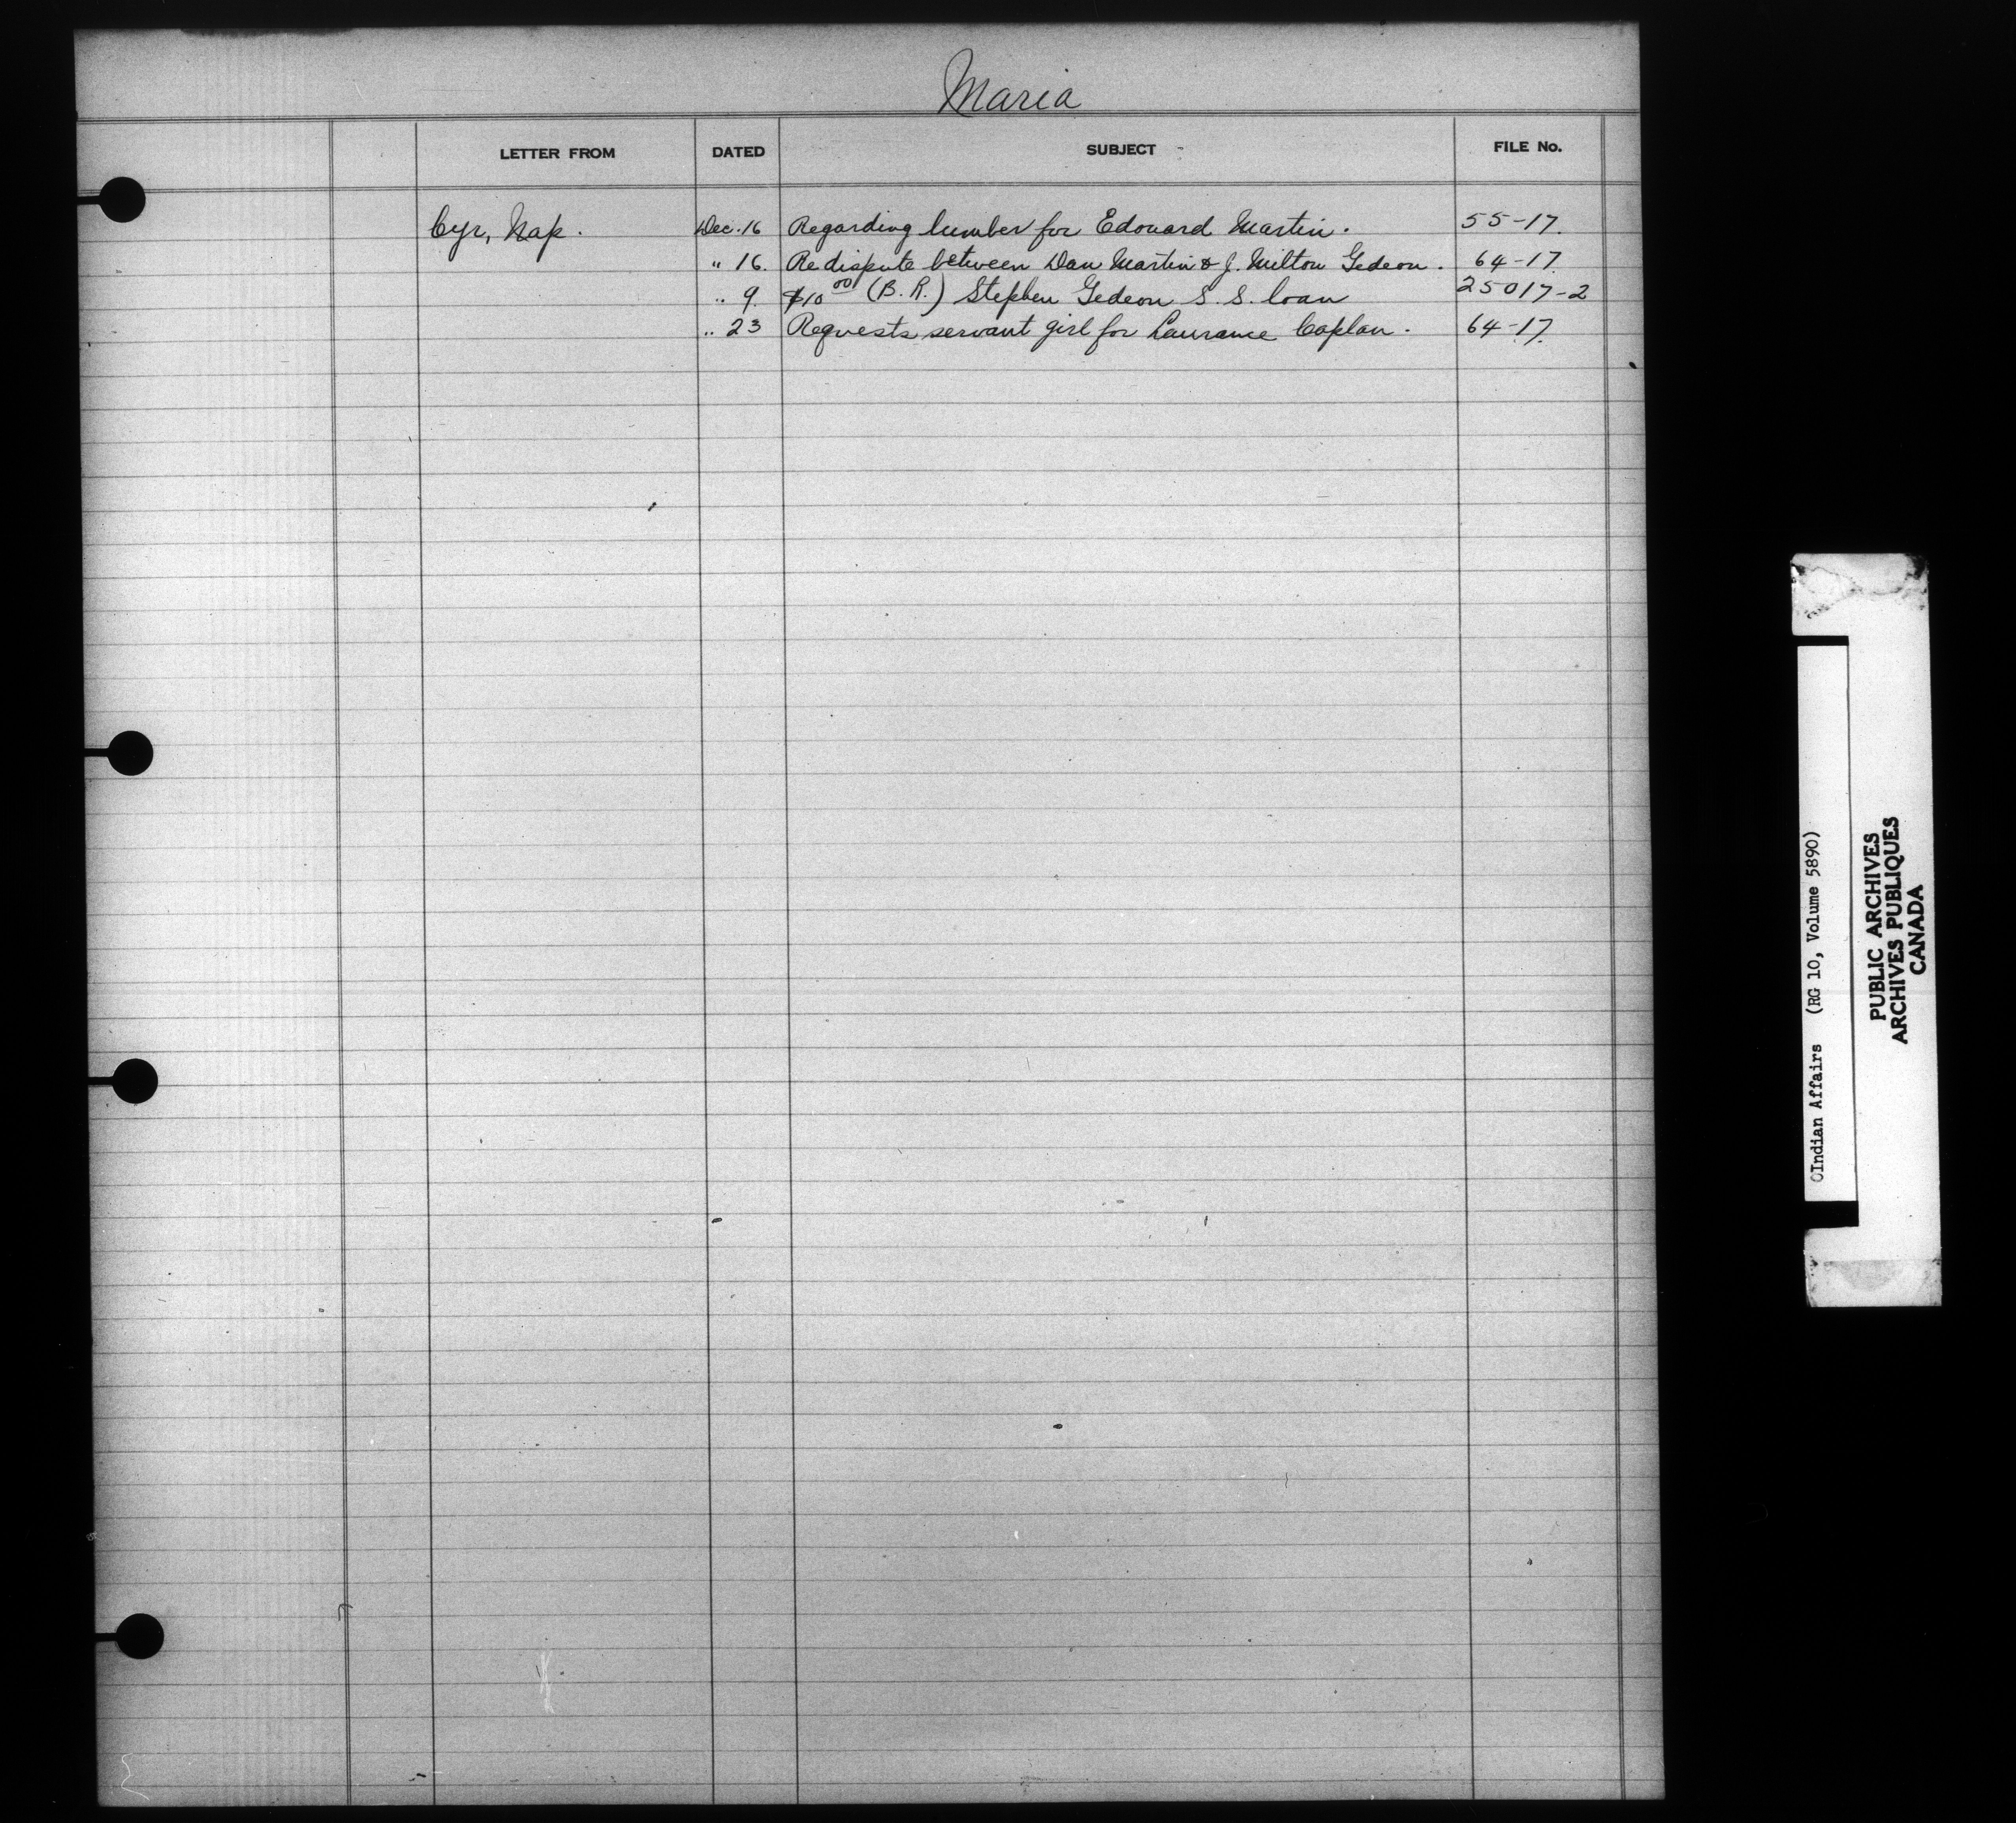 Maria
LETTER FROM DATED SUBJECT FILE No.
Cyr, Nap. Dec. 16 Regarding lumber for Edouard Martin. 55-17.
" 16. Re dispute between Dan Martin & J. Milton Gedeon. 64-17
" 9. $10.00 (B.R.) Stephen Gedeon S.S. loan 25017-2
" 23 Requests servant girl for Laurance Caplan. 64-17.
Indian Affairs (RG 10, Volume 5890)
PUBLIC ARCHIVES
ARCHIVES PUBLIQUES
CANADA